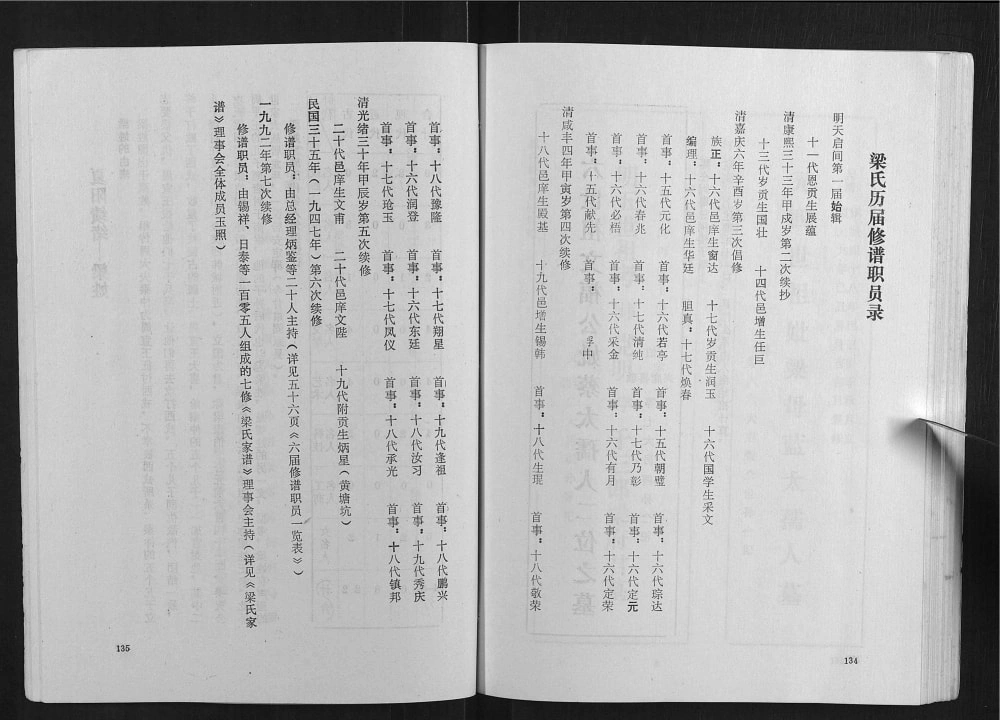 梁氏历届修谱职员录
明天启间第一届始辑
十一代恩贡生展蕴
清康熙三十三年甲戌岁第二次续抄
十三代岁贡生国壮　十四代邑增生任巨
清嘉庆六年辛酉岁第三次倡修
族正：十六代邑庠生窗达　十七代岁贡生润玉　十六代国学生采文
编理：十六代邑庠生华廷　胆真：十七代焕春
首事：十五代元化　首事：十六代若亭　首事：十五代朝璧　首事：十六代琮达
首事：十六代春兆　首事：十七代清纯　首事：十七代乃彰　首事：十六代定元
首事：十六代必梧　首事：十六代采金　首事：十六代有月　首事：十六代定荣
首事：十五代献先　首事：　浮中
清咸丰四年甲寅岁第四次续修
十八代邑庠生殿基　十九代邑增生锡韩　首事：十八代生琨　首事：十八代敬荣
134
首事：十八代豫隆　首事：十七代翔星　首事：十九代逢祖　首事：十八代鹏兴
首事：十六代润登　首事：十六代东廷　首事：十八代汝习　首事：十九代秀庆
首事：十七代玱玉　首事：十七代凤仪　首事：十八代承光　首事：十八代镇邦
清光绪三十年甲辰岁第五次续修
二十代邑庠生文甫　二十代邑庠文陛　十九代附贡生炳星（黄塘坑）
民国三十五年（一九四七年）第六次续修
修谱职员：由总经理炳鉴等二十人主持（详见五十六页《六届修谱职员一览表》）
一九九二年第七次续修
修谱职员：由锡祥、日泰等一百零五人组成的七修《梁氏家谱》理事会主持（详见《梁氏家
谱》理事会全体成员玉照）
135